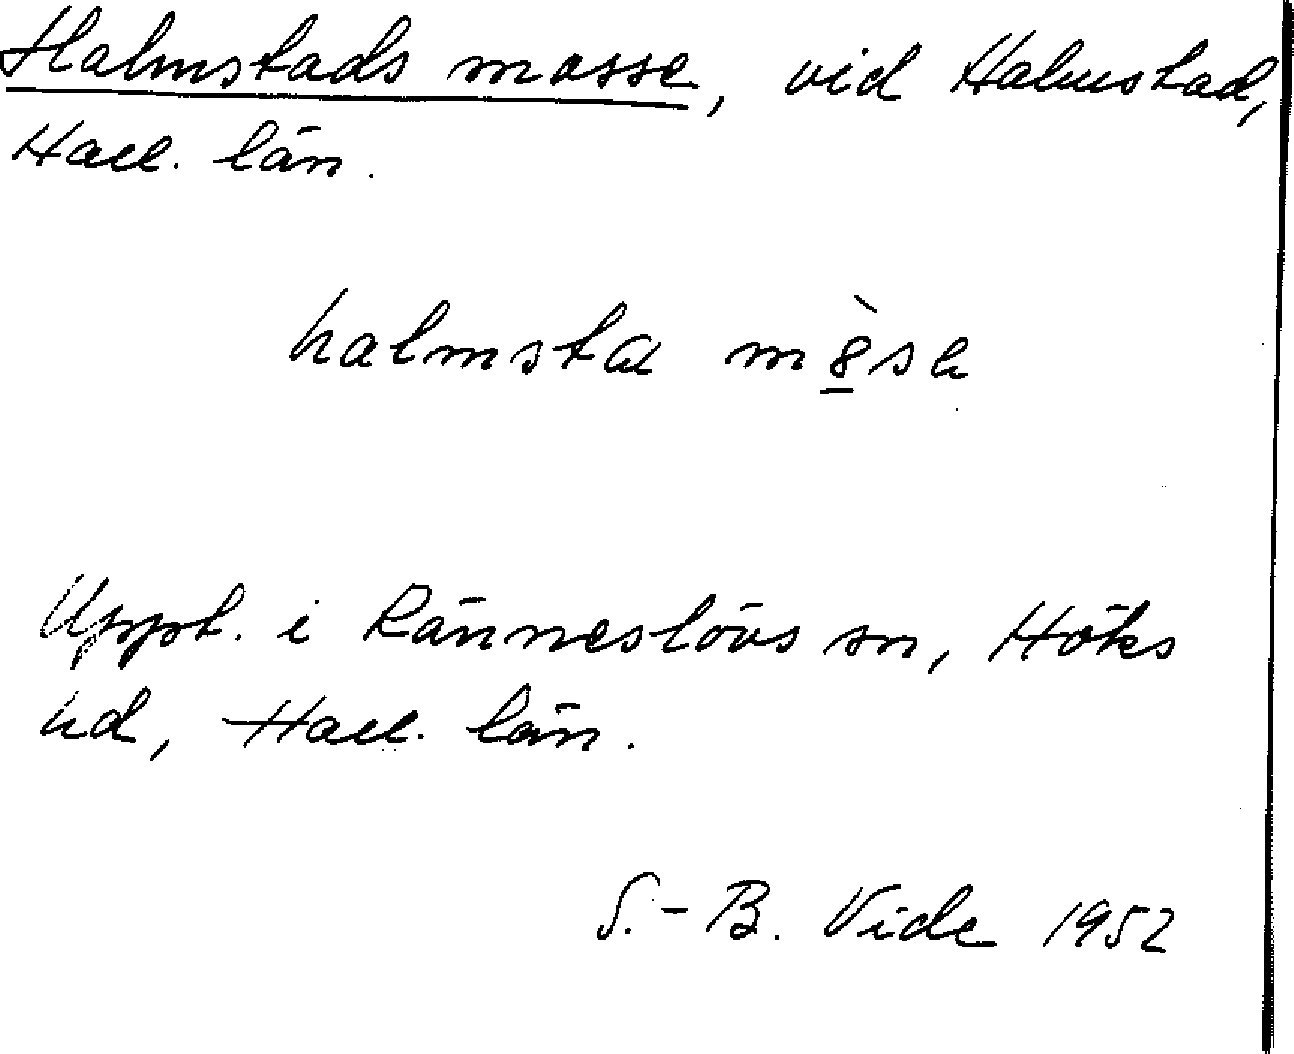 Halmstads mosse, vid Halmstad,
Hall. län.
halmsta m8̠̀sə
Uppt. i Ränneslövs sn, Höks
hd, Hall. län.
S.-B. Vide 1952